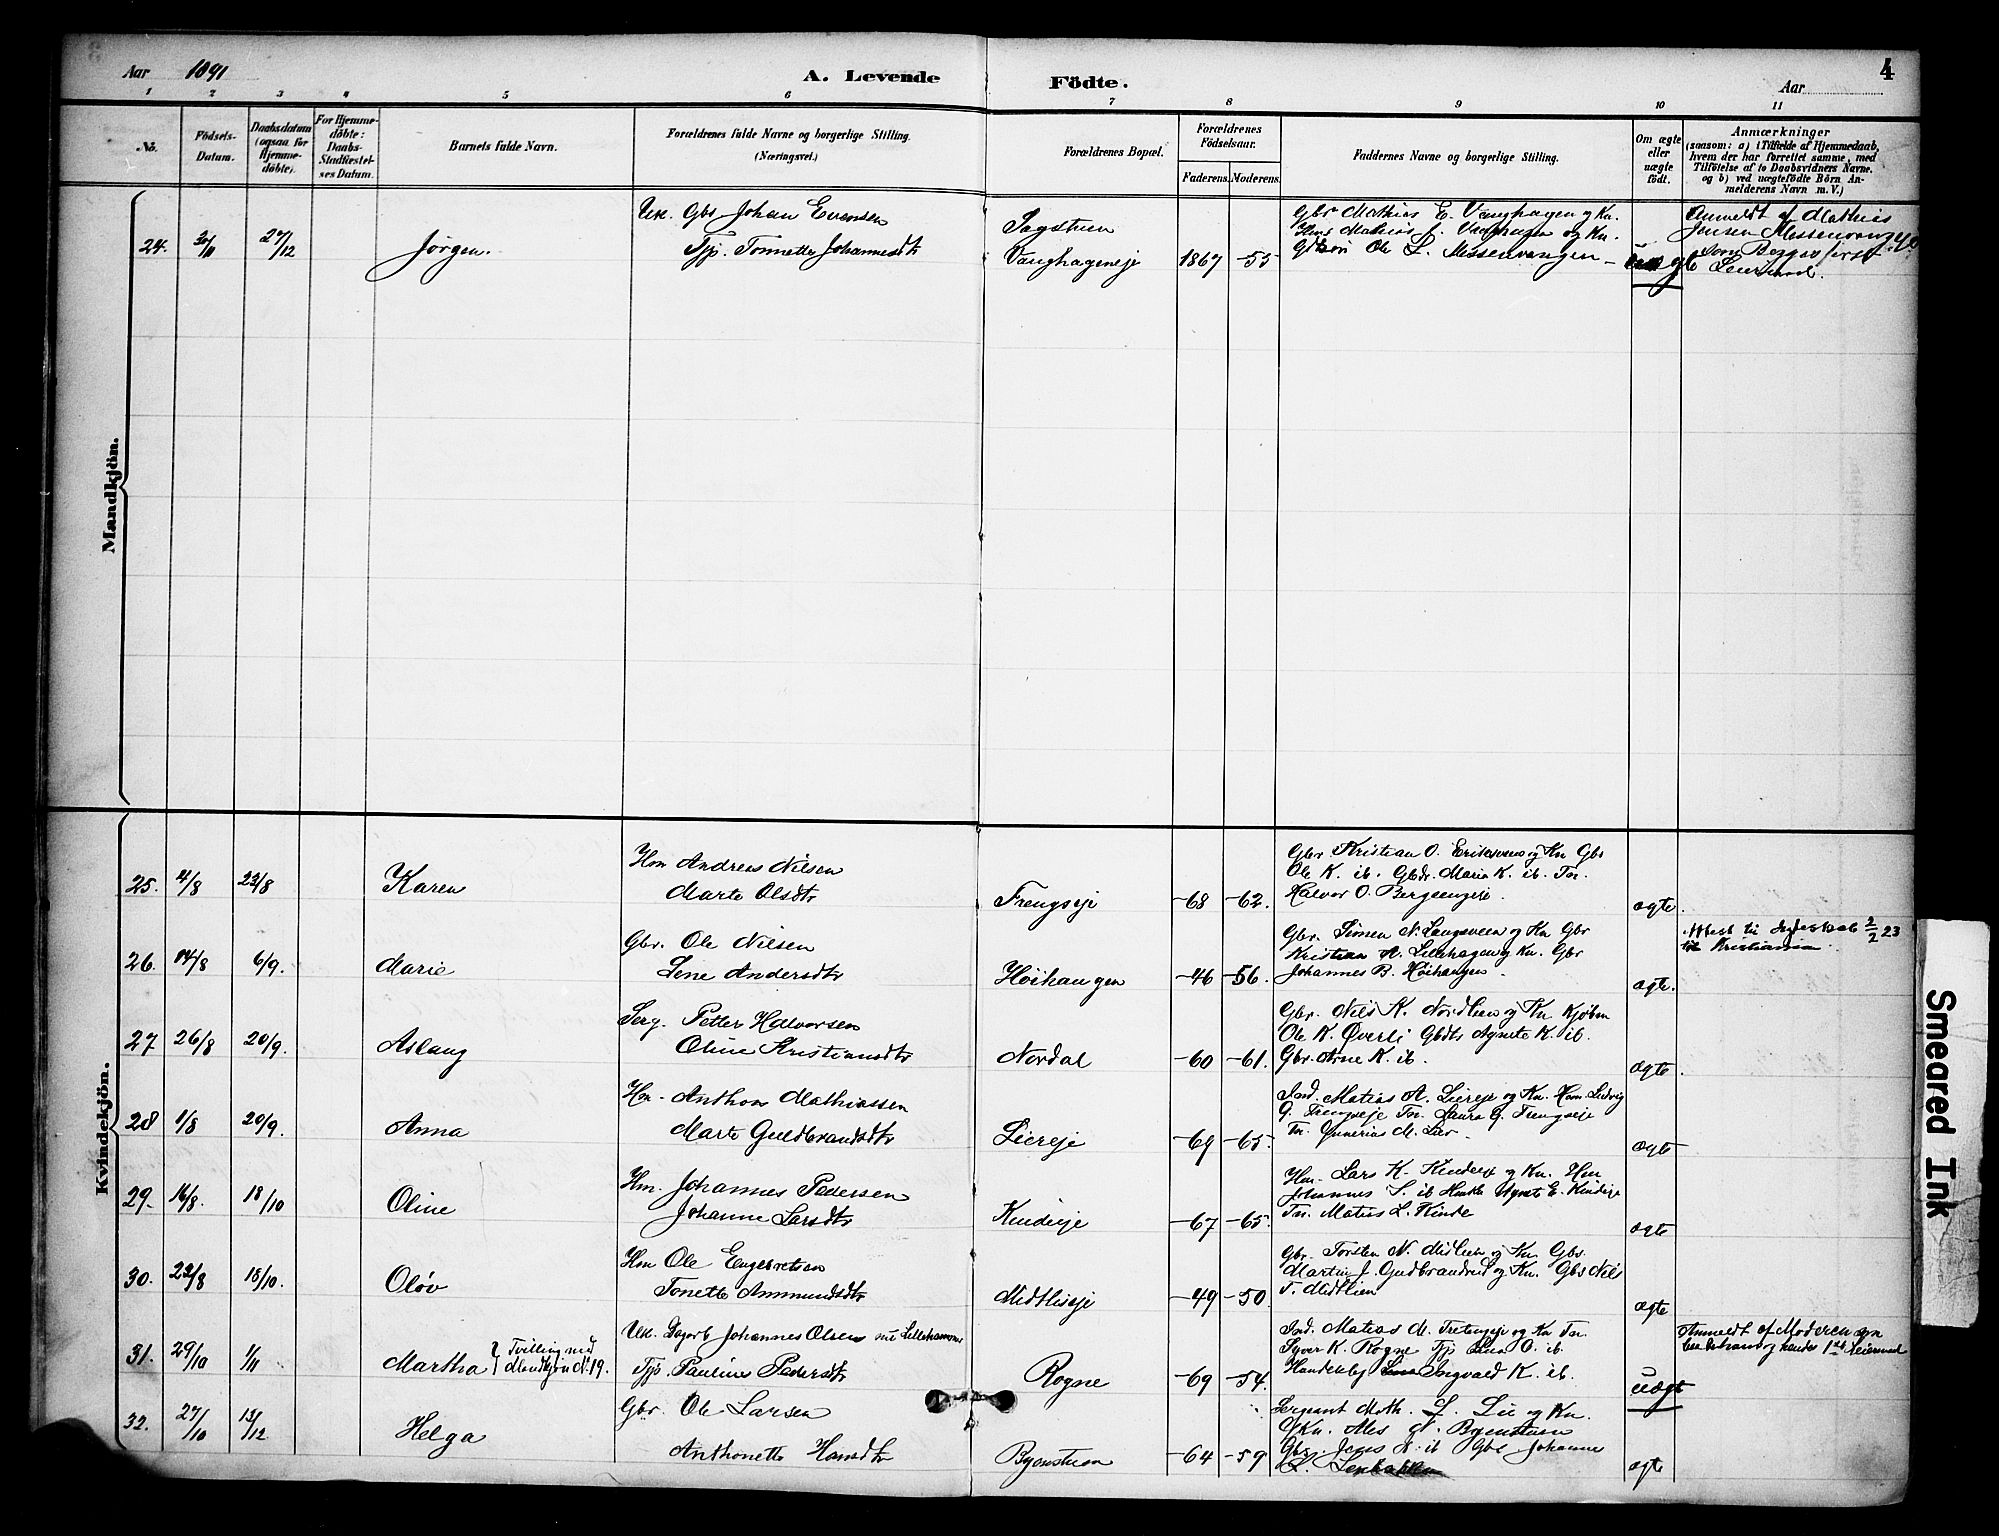 Aar 1891
A. Levende Födte.
Aar
4
1 2 3 4 5 6 7 8 9 10 11
No.
Födsels-Datum.
Daabsdatum (ogsaa for Hjemme-döbte).
For Hjemme-döbte: Daabs-Stadfæstel-ses Datum.
Barnets fulde Navn.
Forældrenes fulde Navne og borgerlige Stilling. (Næringsvei.)
Forældrenes Bopæl.
Forældrenes Födselsaar.
Faderens. Moderens.
Faddernes Navne og borgerlige Stilling.
Om ægte eller uægte födt.
Anmærkninger
(saasom: a) i Tilfælde af Hjemmedaab,
hvem der har forrettet samme, med
Tilföielse af to Daabsvidners Navne.
og b) ved uægtefödte Börn An-
melderens Navn m. V.)
Mandkjön.
Uk. Gbs Johan Evensen
24. 27/12 Jørgen.
Tjp. Tonnette Johannesdtr
Sagstuen
Vanghageneje 1867 -55
Gbr Mathias E. Vanghagen og Kn.
Ole L. Messenvangen
Anmeldt af Mathias
Jensen Messenvangeje
som
Leiermaal.
Kvindekjön.
25. 4/8 23/8 Karen
Hm Andreas Nilsen
Marte Olsdtr
Frengseje -68 -62.
Gbr Kristian O. Eriksveen og Kn Gbs
Ole K. ib. Gbdr. Maria K. ib. Tn.
Halvor O. Bergeengeie.
ægte.
26. 14/8 6/9. Marie
Gbr. Ole Nilsen
Lene Andersdtr
Höihaugen -46 -56.
Gbr. Simen N. Langsveen og Kn Gbr
Kristian A. Lillehagen og Kn. Gbr
Johannes B. Höihaugen.
ægte.
Attest til 2/2 23
til Kristiania.
27 26/8 20/9. Aslaug
Serg. Petter Halvorsen
Oline Kristiansdtr
Nordal -60 -61.
Gbr. Nils K. Nordlien og Kn Kjöbm
Ole K. Överli Gbdtr Agnete K. ib.
Gbr. Arne K. ib.
ægte.
28 1/8 20/9. Anna
Hm. Anthon Mathiassen
Marte Guldbrandsdtr
Liereje -69 -65.
Ind. Matias A. Liereje og Kn. Hm. Ludvig
G. Frengseje Tn. Laura G. Frengseje
Tn. M. Lier.
ægte
29. 16/8. 18/10 Oline
Hm. Johannes Pedersen
Johanne Larsdtr
Kindeje -67 -65.
Hm. Lars K. Kindeje og Kn. Hm
Johannes S. ib Agnete E. Kindeje
Tn. Matias L. Kinde
ægte
30. 23/8 18/10. Olöv
Hm Ole Engebretsen
Tonette Ammundsdtr
Midtlieeje -49 -50.
Gbr. Torsten N. Midtlien og Kn. Gbs.
Martin J. Gudbrandrud og Kn. Gbs Nils
T. Midtlien
ægte
31. 29/10 1/11 Martha { Tvilling med Mandkjön No 19.
Uk. Dagarb. Johannes Olsen nu Lillehammer
Tjp. Pauline Pedersdtr
Rogne -69 -54.
Ind. Matias M. Tretengeje og Kn Tn.
Syver K. Rogne Tjp Lina O. ib.
Handelsbej Ingvald K. ib.
uægte
Anmeldt af Moderen
hendes 1ste Leiermaal
32. 27/10 13/12 Helga
Gbr. Ole Larsen
Anthonette Hansdtr
Byenstuen -64 -59
Sergeant Math. L. Lie og Kn.
Byenstuen
Gbs. Jens N. ib Gbs Johannes
L.
ægte
Smeared Ink